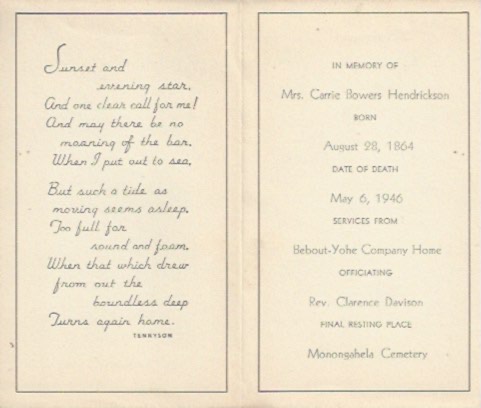 Sunset and
evening star,
And one clear call for me!
And may there be no
moaning of the bar,
When I put out to sea,
But such a tide as
moving seems asleep,
Too full for
sound and foam,
When that which drew
from out the
boundless deep
Turns again home.
TENNYSON
IN MEMORY OF
Mrs. Carrie Bowers Hendrickson
BORN
August 28, 1864
DATE OF DEATH
May 6, 1946
SERVICES FROM
Bebout-Yohe Company Home
OFFICIATING
Rev. Clarence Davison
FINAL RESTING PLACE
Monongahela Cemetery